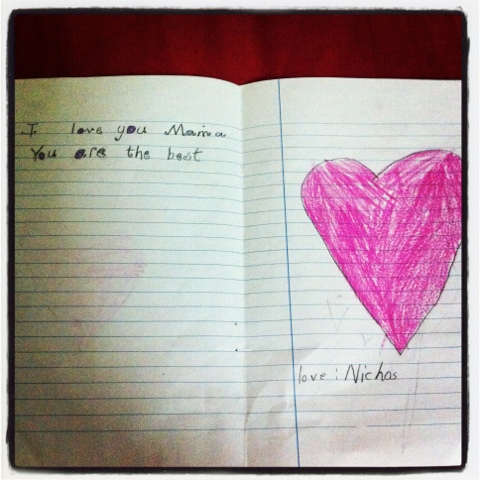 I love you Mama
You are the best
love : Nichos